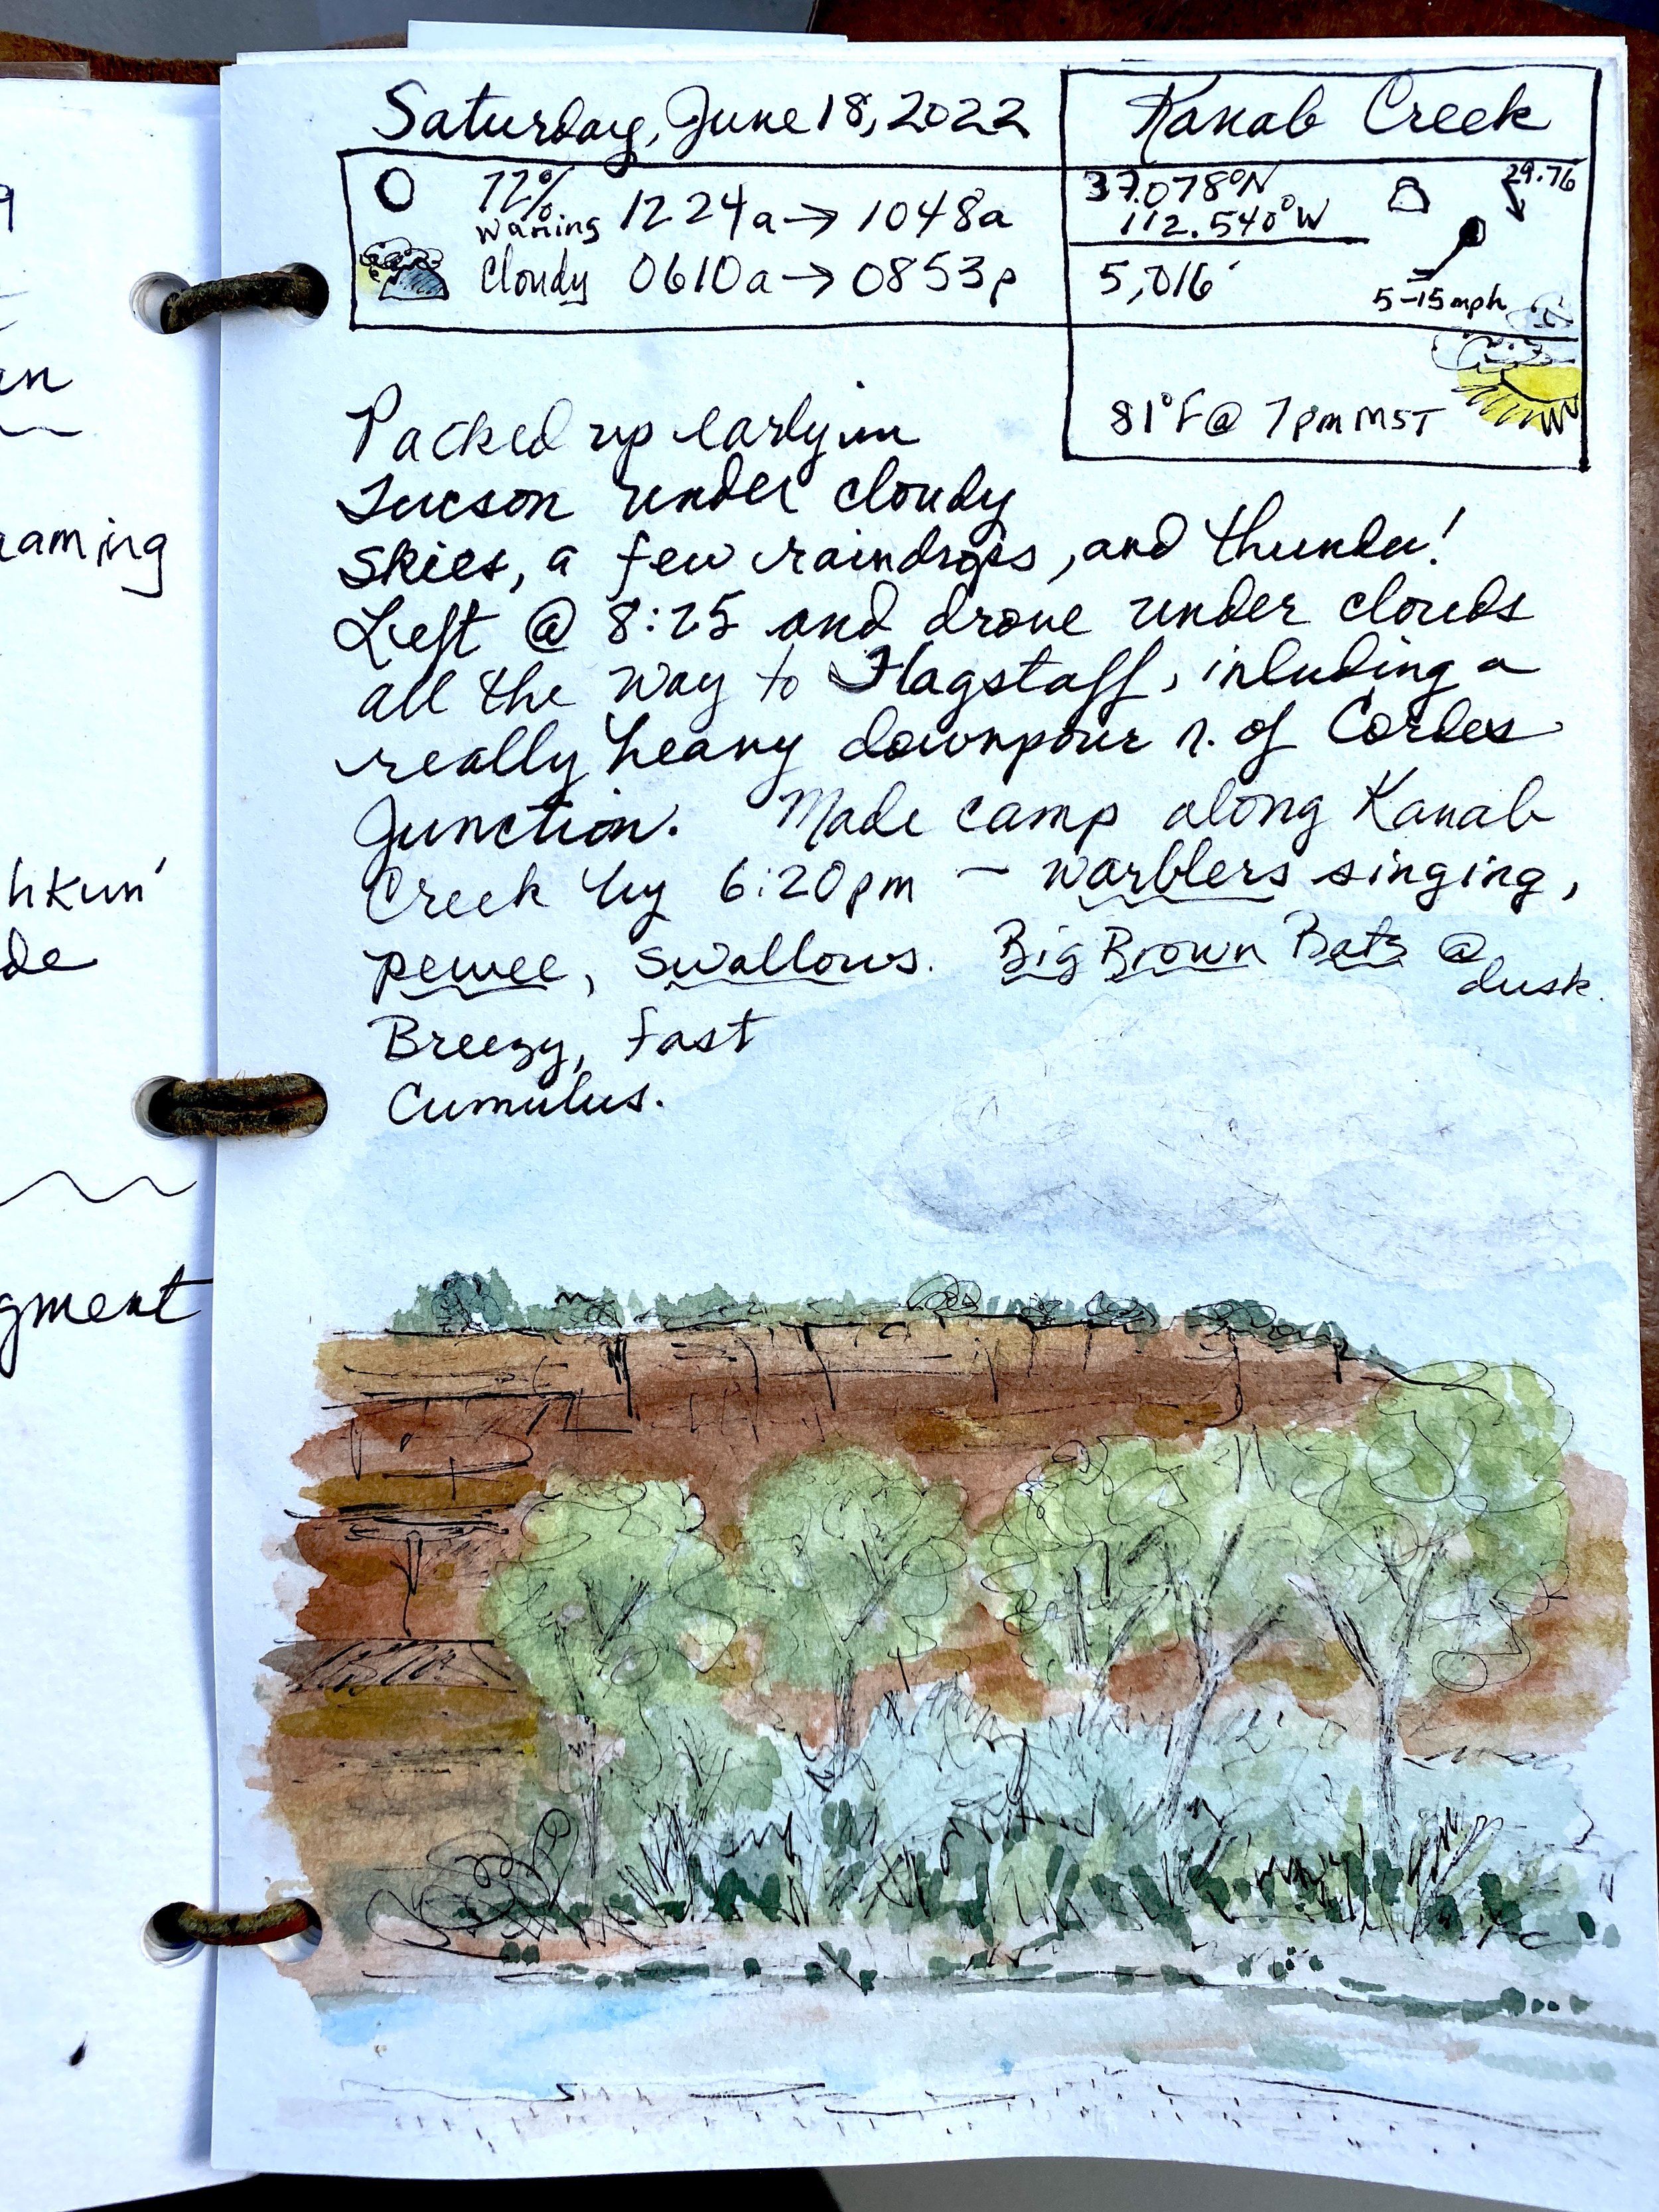 Saturday, June 18, 2022
Kanab Creek
72% waning 1224a → 1048a
Cloudy 0610a → 0853p
37.078°N
112.540°W
5,016'
29.76
5-15mph
81°F @ 7pm MST
Packed up early in
Tucson under cloudy
skies, a few raindrops, and thunder!
Left @ 8:25 and drove under clouds
all the way to Flagstaff, inluding a
really heavy downpour n. of Cordes
Junction. Made camp along Kanab
Creek by 6:20pm ~ warblers singing,
pewee, swallows. Big Brown Bats @
dusk.
Breezy, fast
Cumulus.
9
an
aming
hkun'
de
gment